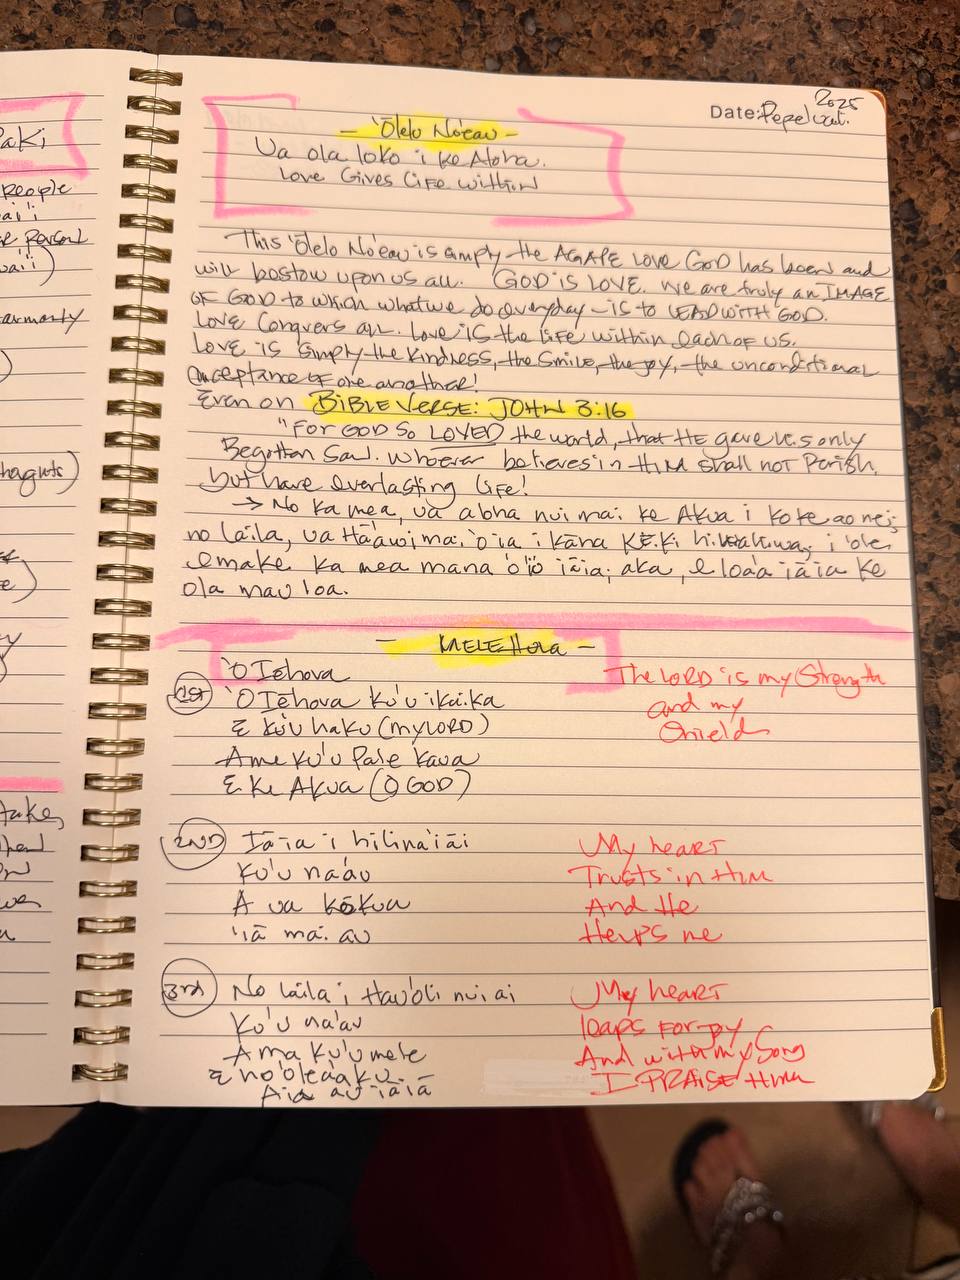 2025
Date: Pepeluali.
- 'Ōlelo No'eau -
Ua ola loko i ke Aloha.
Love Gives Life within
This 'Ōlelo No'eau is simply the AGAPE LOVE GOD has been and
will bestow upon us all. GOD IS LOVE. We are truly an IMAGE
OF GOD to which what we do everyday - is to LEAD WITH GOD.
LOVE Conquers all. Love is the life within each of us.
Love is simply the kindness, the smile, the joy, the unconditional
acceptance of one another!
Even on BIBLE VERSE: JOHN 3:16
"For GOD SO LOVED the world, that HE gave his only
Begotten Son. Whoever believes in HIM shall not Perish,
but have everlasting life!
→ No ka mea, ua aloha nui mai ke Akua i ko ke ao nei;
no laila, ua Hā'awi mai 'o ia i kāna Keiki hiwahiwa, i 'ole
e make ka mea mana'o'i'o iāia, aka, e loa'a iāia ke
ola mau loa.
- MELE Hula -
'O Iēhova
1st 'O Iēhova Ku'u ikaika
E ku'u haku (my LORD)
A me ku'u Pale Kaua
E Ke Akua (O GOD)
The LORD is my Strength
and my
Shield
2ND Iāia i hilina'i ai
Ku'u na'au
A ua kōkua
'iā mai au
My heart
Trusts in HIM
And He
Helps me
3rd No laila i Hau'oli nui ai
Ku'u na'au
A ma ku'u mele
E ho'olea aku
Aia au iāiā
My heart
leaps for joy
And with my Song
I PRAISE Him
aKi
People
Person
armony
thoughts)
take,